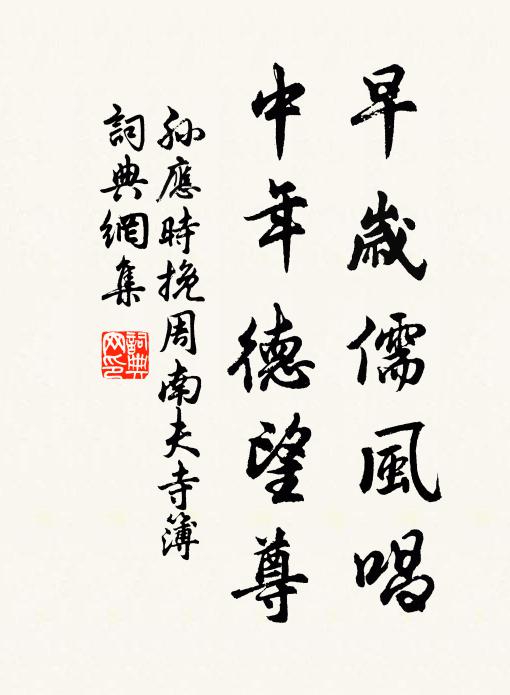 早歲儒風唱
中年德望尊
孫應時挽周南夫寺簿
詞典網集
詞典網印